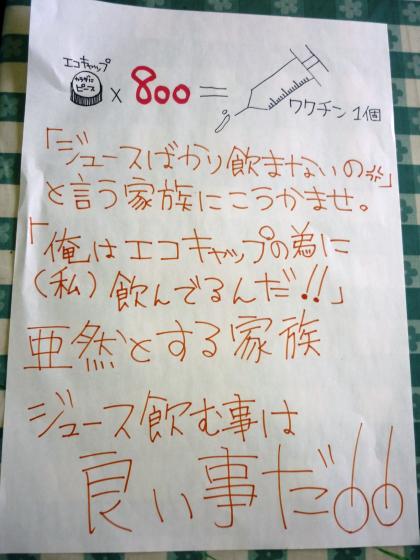 エコキャップ
カラダにピース × 800 = ワクチン 1個
「ジュースばかり飲まないの💢」
と言う家族にこうかませ。
「俺はエコキャップの為に
(私) 飲んでるんだ!!」
亜然とする家族
ジュース飲む事は
良い事だ!!